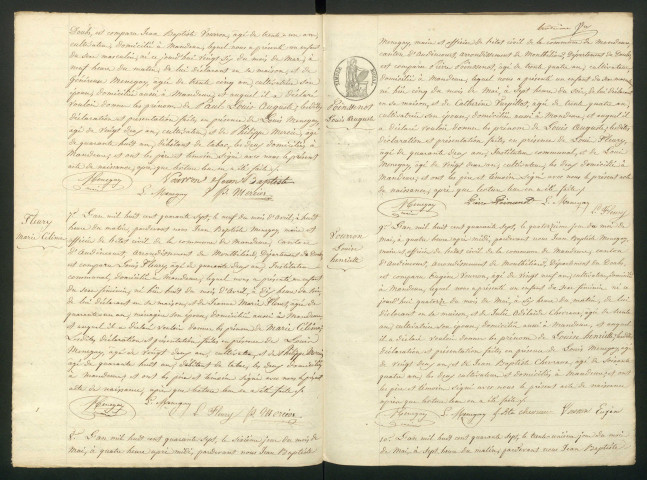 Doubs, est comparu Jean Baptiste Vouron, agé de trente un an,
cultivateur, domicilié à Mandeure, lequel nous a présenté un enfant
du sexe masculin, né ce jourd'hui vingt six du mois de Mai, à
neuf heure du matin, de lui déclarant en sa maison, et de
Mougey, agé de trente cinq an, cultivatrice son
épouse, domiciliée aussi à Mandeure, et auquel il a déclaré
vouloir donner les prénom de Paul Louis Auguste, lesdites
déclaration et présentation faites en présence de Louis Mougey,
agé de vingt deux an, cultivateur, et de Philippe Mercier, agé de
quarante huit an, débitant de tabac, les deux domiciliés à
Mandeure; et ont les père et témoin signés avec nous le présent
acte de naissance, après que lecture leur en a été faite.
Mougey Vouron Jean Baptiste
L. Mougey Ph Mercier
Fleury
Marie Celina
7° L'an mil huit cent quarante sept, le neuf du mois d'Avril, à huit
heure du matin, pardevant nous Jean Baptiste Mougey maire et
officier de l'état civil de la commune de Mandeure, canton
d'Audincourt, arrondissement de Montbéliard, Département du Doubs,
est comparu Louis Fleury, agé de quarante deux an, Instituteur
communal, domicilié à Mandeure, lequel nous a présenté un enfant
du sexe féminin, né hier huit du mois d'Avril, à dix heure du soir,
de lui déclarant en sa maison, et de Jeanne Marie
quarante un an, ménagère son épouse, domiciliée aussi à Mandeure,
et auquel il a déclaré vouloir donner les prénom de Marie Celina,
Lesdites déclaration et présentation faites en présence de Louis
Mougey, agé de vingt deux an, cultivateur, et de Philippe Mercier
agé de quarante huit an, débitant de tabac, les deux domiciliés
à mandeure; et ont les père et témoin signés avec nous le présent
acte de naissance, après que lecture leur en a été faite.
Mougey L. Mougey
L. Fleury Ph Mercier
8° L'an mil huit cent quarante sept, le sixième jour du mois de
Mai, à quatre heure après midi, pardevant nous Jean Baptiste
Mougey, maire et officier de l'état civil de la commune de Mandeure,
canton d'Audincourt, arrondissement de Montbéliard, Département du Doubs,
est comparu Pierre, agé de trente quatre an, cultivateur,
domicilié à Mandeure, lequel nous a présenté un enfant du sexe masculin
né hier cinq du mois de Mai, à sept heure du soir, de lui déclarant
en sa maison, et de Catherine, agé de trente quatre an,
cultivatrice son épouse, domiciliée aussi à Mandeure, et auquel il
a déclaré vouloir donner les prénom de Louis Auguste, lesdites
déclaration et présentation faites, en présence de Louis Fleury,
agé de quarante deux an, Instituteur communal, et de Louis
Mougey agé de vingt deux an, cultivateur, les deux domiciliés à
Mandeure; et ont les père et témoin signés avec nous le présent acte
de naissance, après que lecture leur en a été faite.
Louis Auguste
Mougey Pierre L. Mougey
L. Fleury
Vouron
Louise
henriette
9° L'an mil huit cent quarante sept, le quatorzième jour du mois de
mai, à quatre heure après midi, pardevant nous Jean Baptiste Mougey,
maire et officier de l'état civil de la commune de Mandeure, canton
d'Audincourt, arrondissement de Montbéliard, Département du Doubs,
est comparu Eugène Vouron, agé de vingt neuf an, cultivateur, domicilié
à Mandeure, lequel nous a présenté un enfant du sexe féminin, né ce
jourd'hui quatorze du mois de Mai, à du matin, de lui
déclarant en sa maison, et de Julie Adélaïde, agé de trente
an, cultivatrice son épouse, domiciliée aussi à Mandeure, et auquel
il a déclaré vouloir donner les prénom de Louise Henriette, lesdites
déclaration et présentation faites, en présence de Louis Mougey, agé
de vingt deux an, et de Jean Baptiste, agé de soixante
quatre an, les deux cultivateurs et domiciliés à Mandeure; et ont
les père et témoin signés avec nous le présent acte de naissance
après que lecture leur en a été faite.
Mougey L. Mougey Vouron Eugène
10° L'an mil huit cent quarante sept, le trente unième jour du mois
de Mai, à sept heure du matin, pardevant nous Jean Baptiste